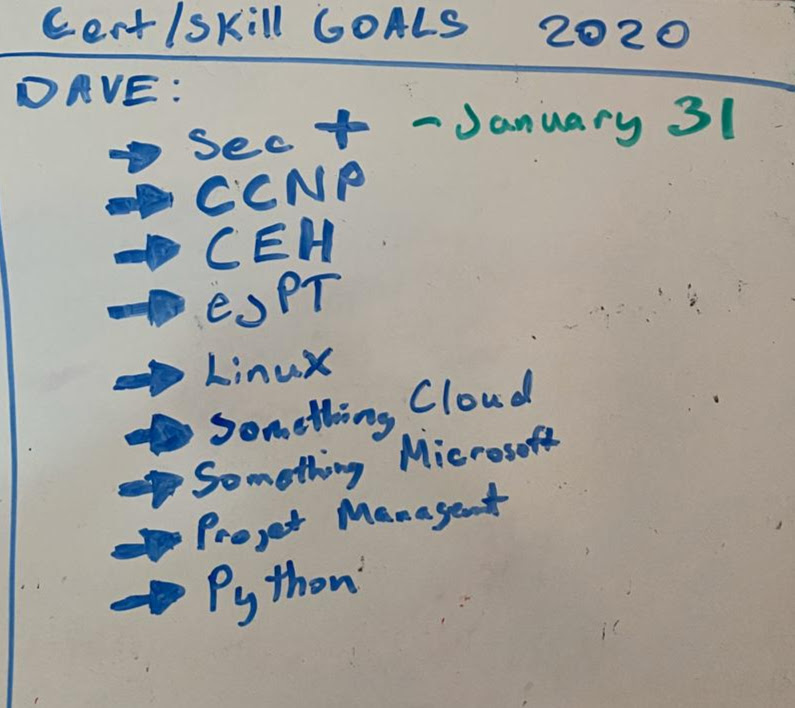 Cert/Skill GOALS 2020
DAVE:
→ Sec + - January 31
→ CCNP
→ CEH
→ eJPT
→ Linux
→ Something Cloud
→ Something Microsoft
→ Projet Managent
→ Python